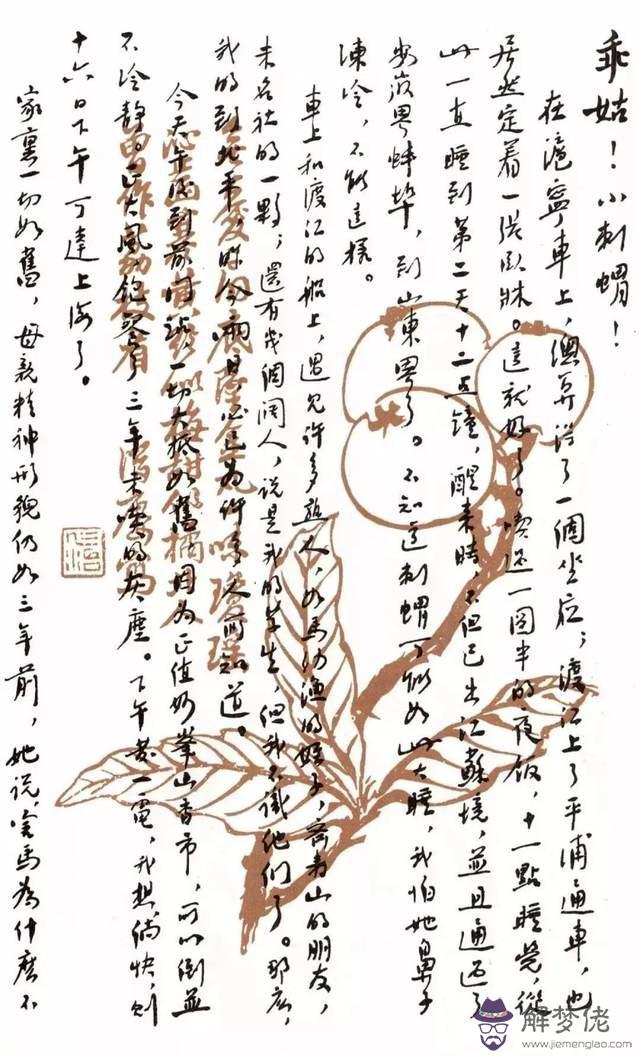 乖姑!小刺蝟!
在滬寧車上,總算得了一個坐位;渡江上了平浦通車,也
居然定着一張臥牀。這就好了。喫過一圓半的夜飯,十一點睡覺,從
此一直睡到第二天十二点鐘,醒來時,不但已出江蘇境,並且通過了
安徽界蚌埠,到山東界了。不知道刺蝟可能如此大睡,我怕她鼻子
凍冷,不能這樣。
車上和渡江的船上,遇見許多熟人,如馬幼漁的姪子,齊壽山的朋友,
未名社的一夥;還有幾個闊人,說是我的學生,但我不識他們了。那麼,
我的到北平,昨今兩日,必已為許多人所知道。
今天午後到前門站,一切大抵如舊,因為正值妙峯山香市,所以倒並
不冷静。正大風,飽餐了三年未喫的灰塵。下午發一電,我想,倘快,則
十六日下午可達上海了。
家裏一切如舊,母親精神形貌仍如三年前,她說,害馬為什麼不
解梦佬
www.jiemenglao.com